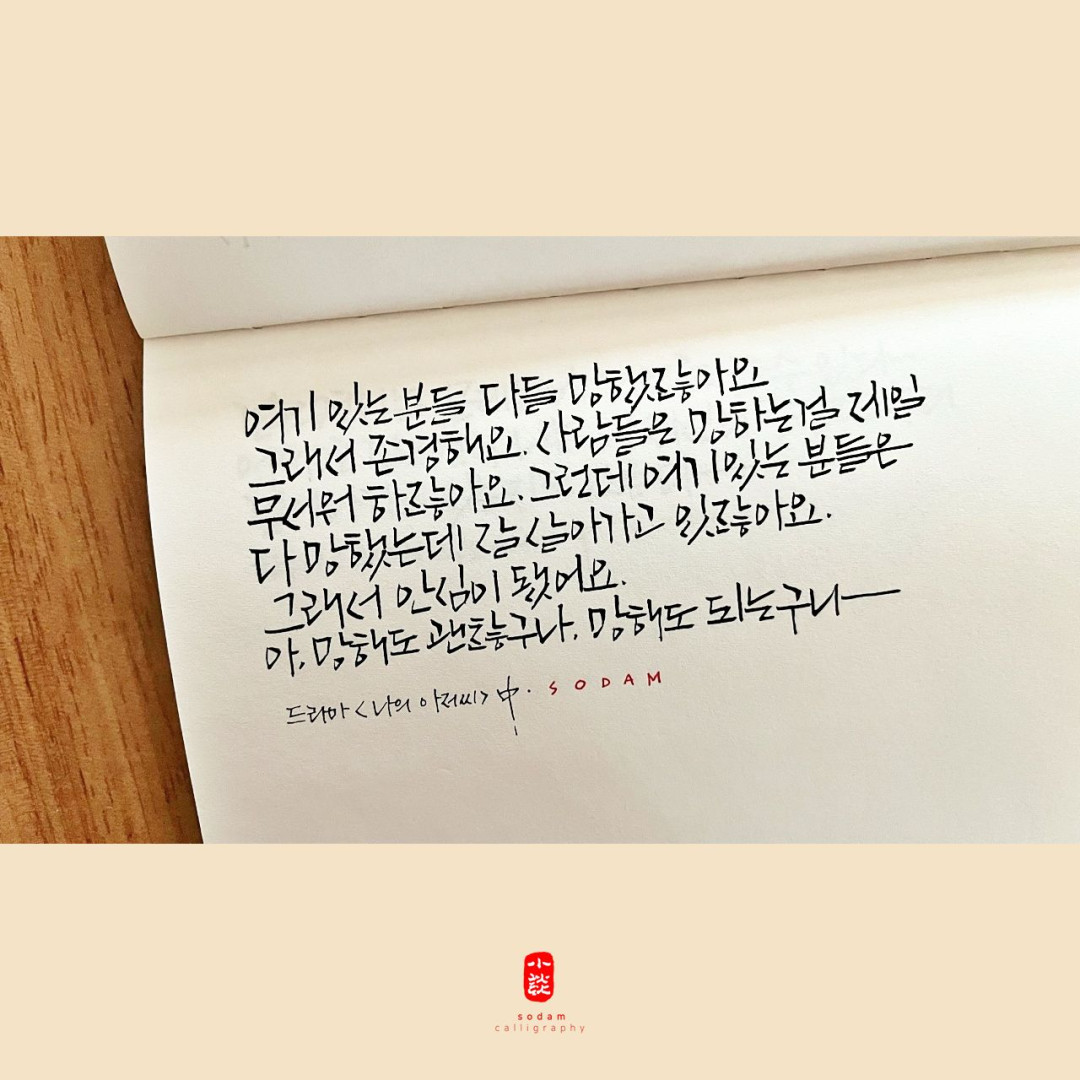 여기 있는 분들 다들 망했잖아요
그래서 존경해요. 사람들은 망하는걸 제일
무서워 하잖아요. 그런데 여기있는 분들은
다 망했는데 잘 살아가고 있잖아요.
그래서 안심이 됐어요.
아, 망해도 괜찮구나, 망해도 되는구나
드라마 <나의 아저씨> 中. SODAM
小談
sodam
calligraphy